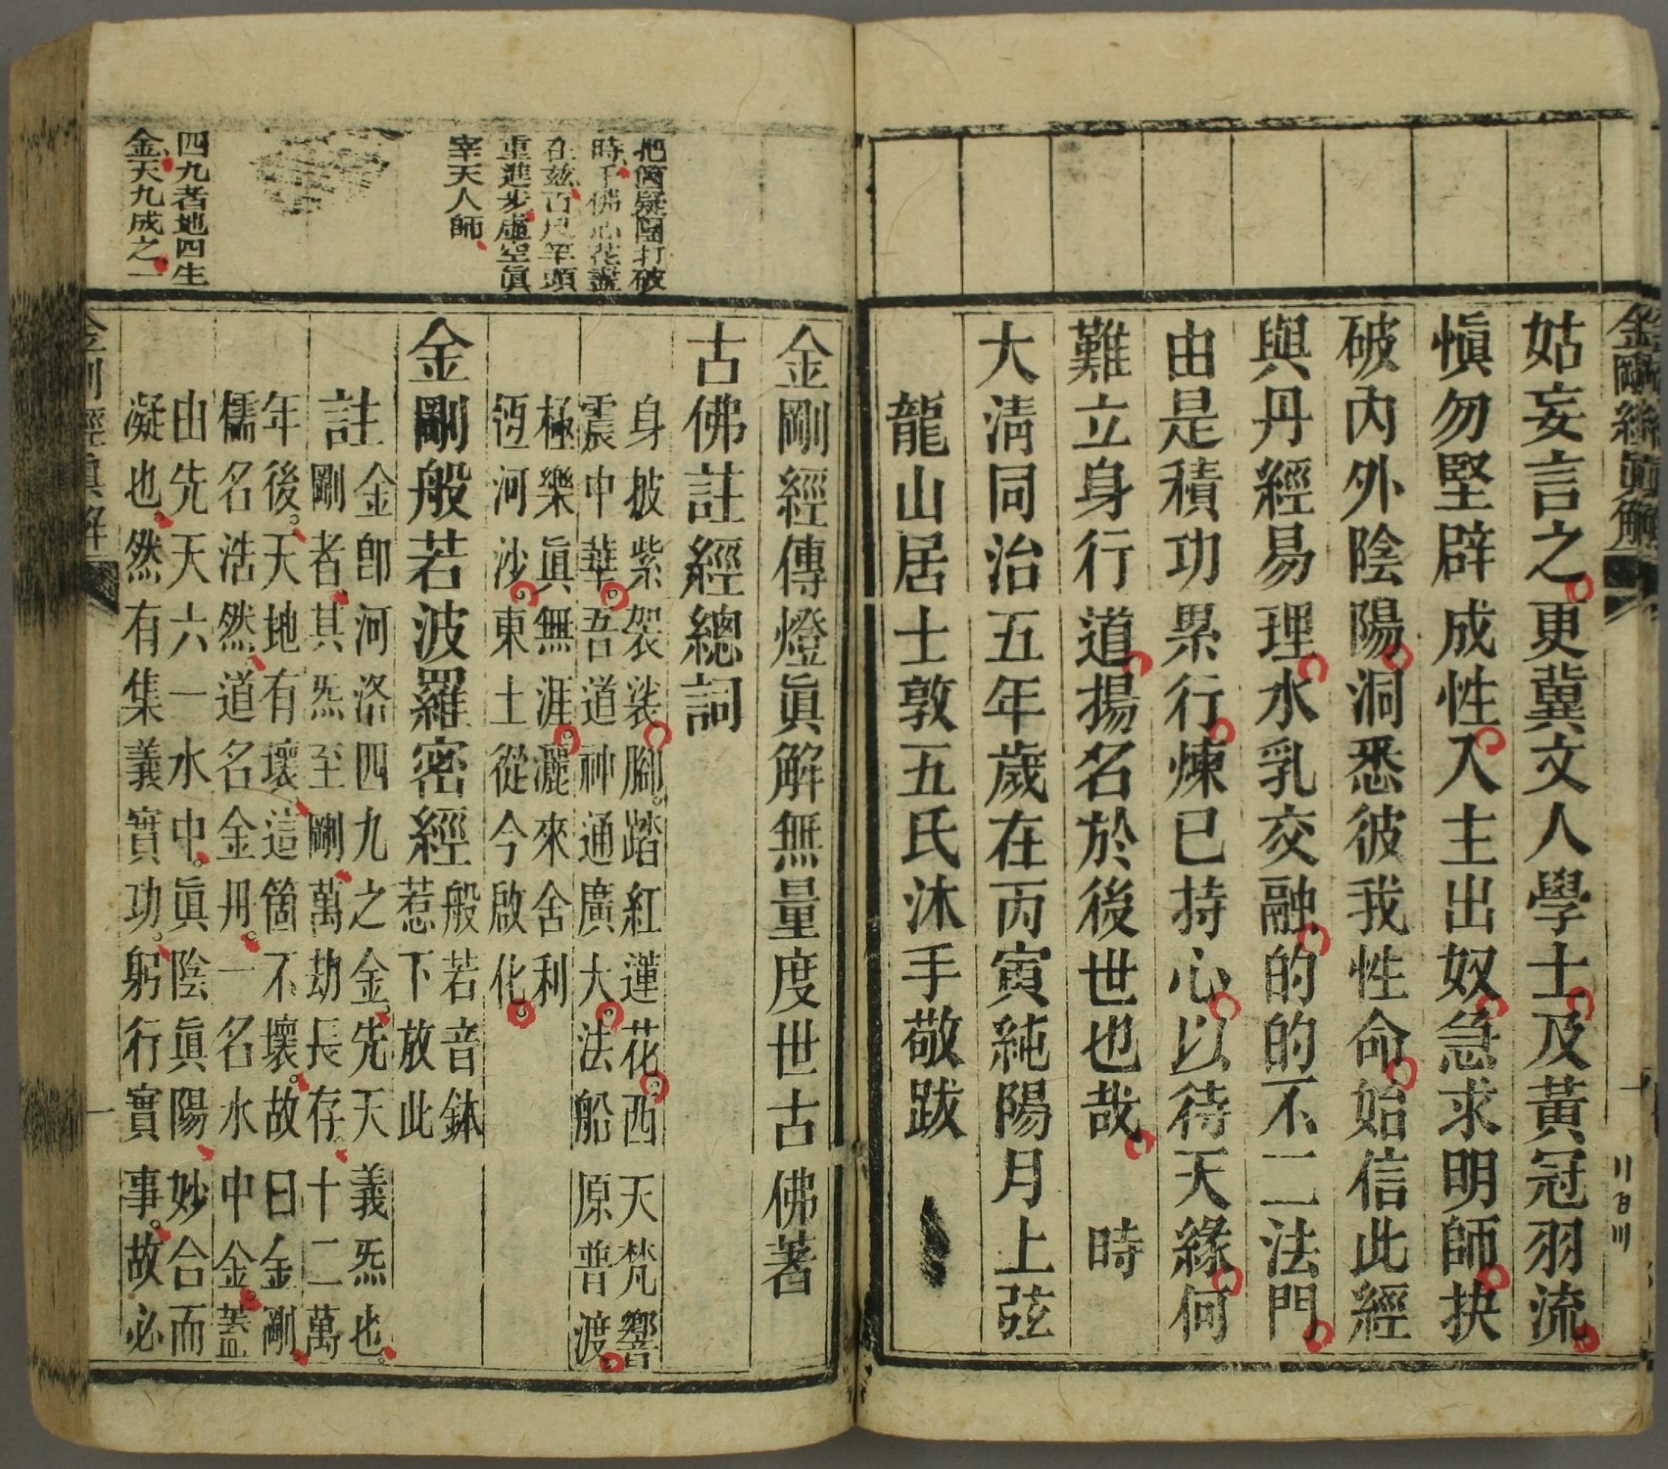 金剛經眞解
姑妄言之更冀文人學士及黃冠羽流
愼勿堅辟成性入主出奴急求明師抉
破內外陰陽洞悉彼我性命始信此經
與丹經易理水乳交融的的不二法門
由是積功累行煉已持心以待天緣何
難立身行道揚名於後世也哉　時
大淸同治五年歲在丙寅純陽月上弦
龍山居士敦五氏沐手敬跋
金剛經傳燈眞解無量度世古佛著
古佛註經總詞
身披紫袈裟腳踏紅蓮花西天梵響
震中華吾道神通廣大法船原普渡
極樂眞無涯灑來舍利
恆河沙東土從今啟化
金剛般若波羅密經般若音鉢
惹下放此
註金卽河洛四九之金先天義炁也
剛者其炁至剛萬劫長存十二萬
年後天地有壞這箇不壞故曰金剛
儒名浩然道名金丹一名水中金蓋
由先天六一水中眞陰眞陽妙合而
凝也然有集義實功躬行實事故必
把箇疑團打破
時千佛心花盡
在玆百尺竿頭
重進步虛空眞
宰天人師
四九者地四生
金天九成之一
金剛經眞解
一